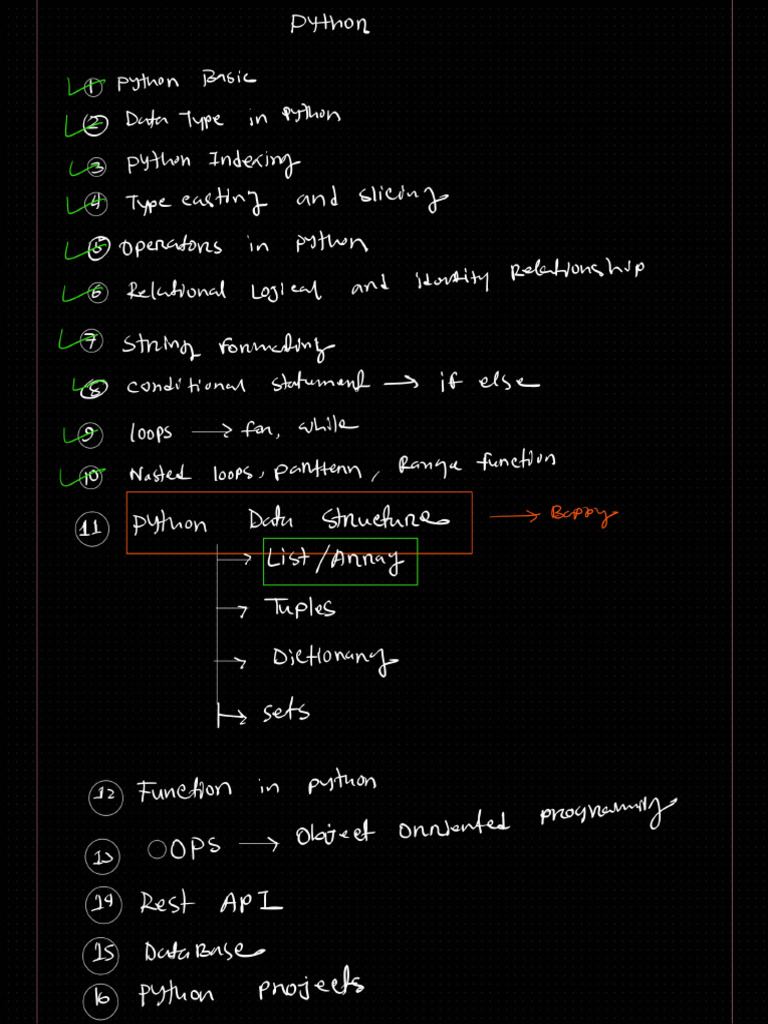 Python
1 Python Basic
2 Data Type in Python
3 Python Indexing
4 Type casting and slicing
5 Operators in python
6 Relational Logical and identity Relationship
7 String Formating
8 Conditional statement → if else
9 loops → for, while
10 Nasted loops, panttern, Range function
11 Python Data Structure → Bappy
→ List/Array
→ Tuples
→ Dictionary
→ sets
12 Function in python
13 OOPS → Object Orriented programming
14 Rest API
15 DataBase
16 Python projects